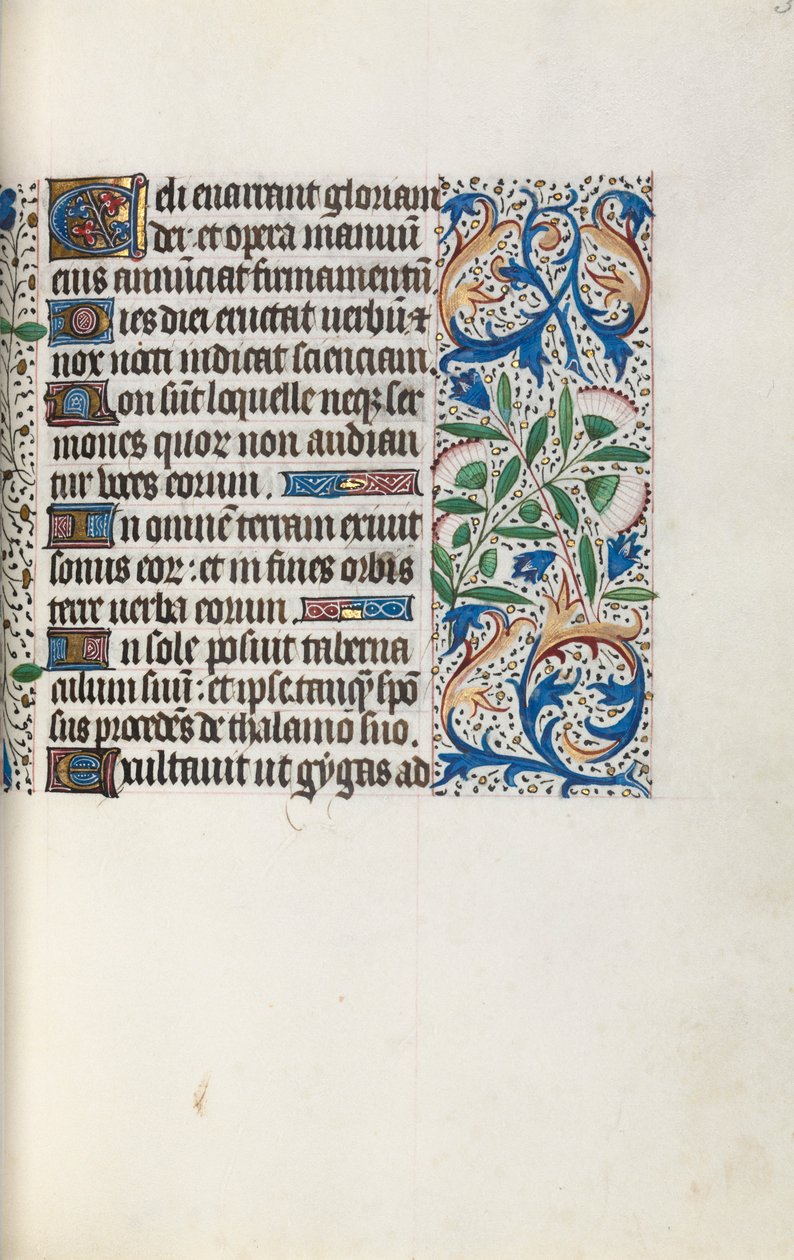 Celi enarrant gloriam
dei · et opera manuũ
eius annũciat firmamentũ
Dies diei eructat uerbũ ⁊
nox nocti indicat scienciam.
Non sũt loquelle neqꝫ ser
mones quoꝝ non audian
tur uoces eorum.
In omnẽ terram exiuit
sonus eoꝝ : et in fines orbis
terre uerba eorum.
In sole posuit taberna
culum suũ : et ipse tanqᷓ spõ
sus procedẽs de thalamo suo.
Exultauit ut gygas ad